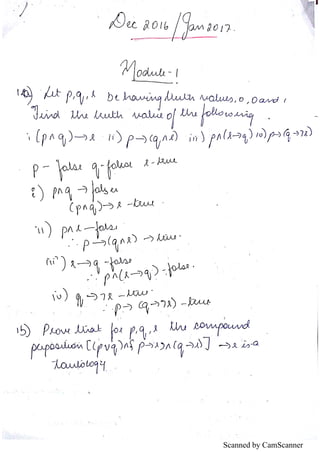 Dec 2016/Jan 2017.
Module-1
1a) Let p,q,r be having truth values, 0, 0 and 1
Find the truth value of the following.
i (p∧q)→r ii) p→(q∧r) iii) p∧(r→q) iv) p→(q→¬r)
p – false q-false r-true
i) p∧q → false
(p∧q)→r -true
ii) p∧r – false
∴ p→(q∧r) → true.
iii) r→q -false
∴ p∧(r→q) -false.
iv) q→¬r – true
∴ p→(q→¬r) – true
1b) Prove that for p,q,r the compound
preposition [(p∨q)∧{p→r}∧(q→r)] →r is a
tautology
Scanned by CamScanner